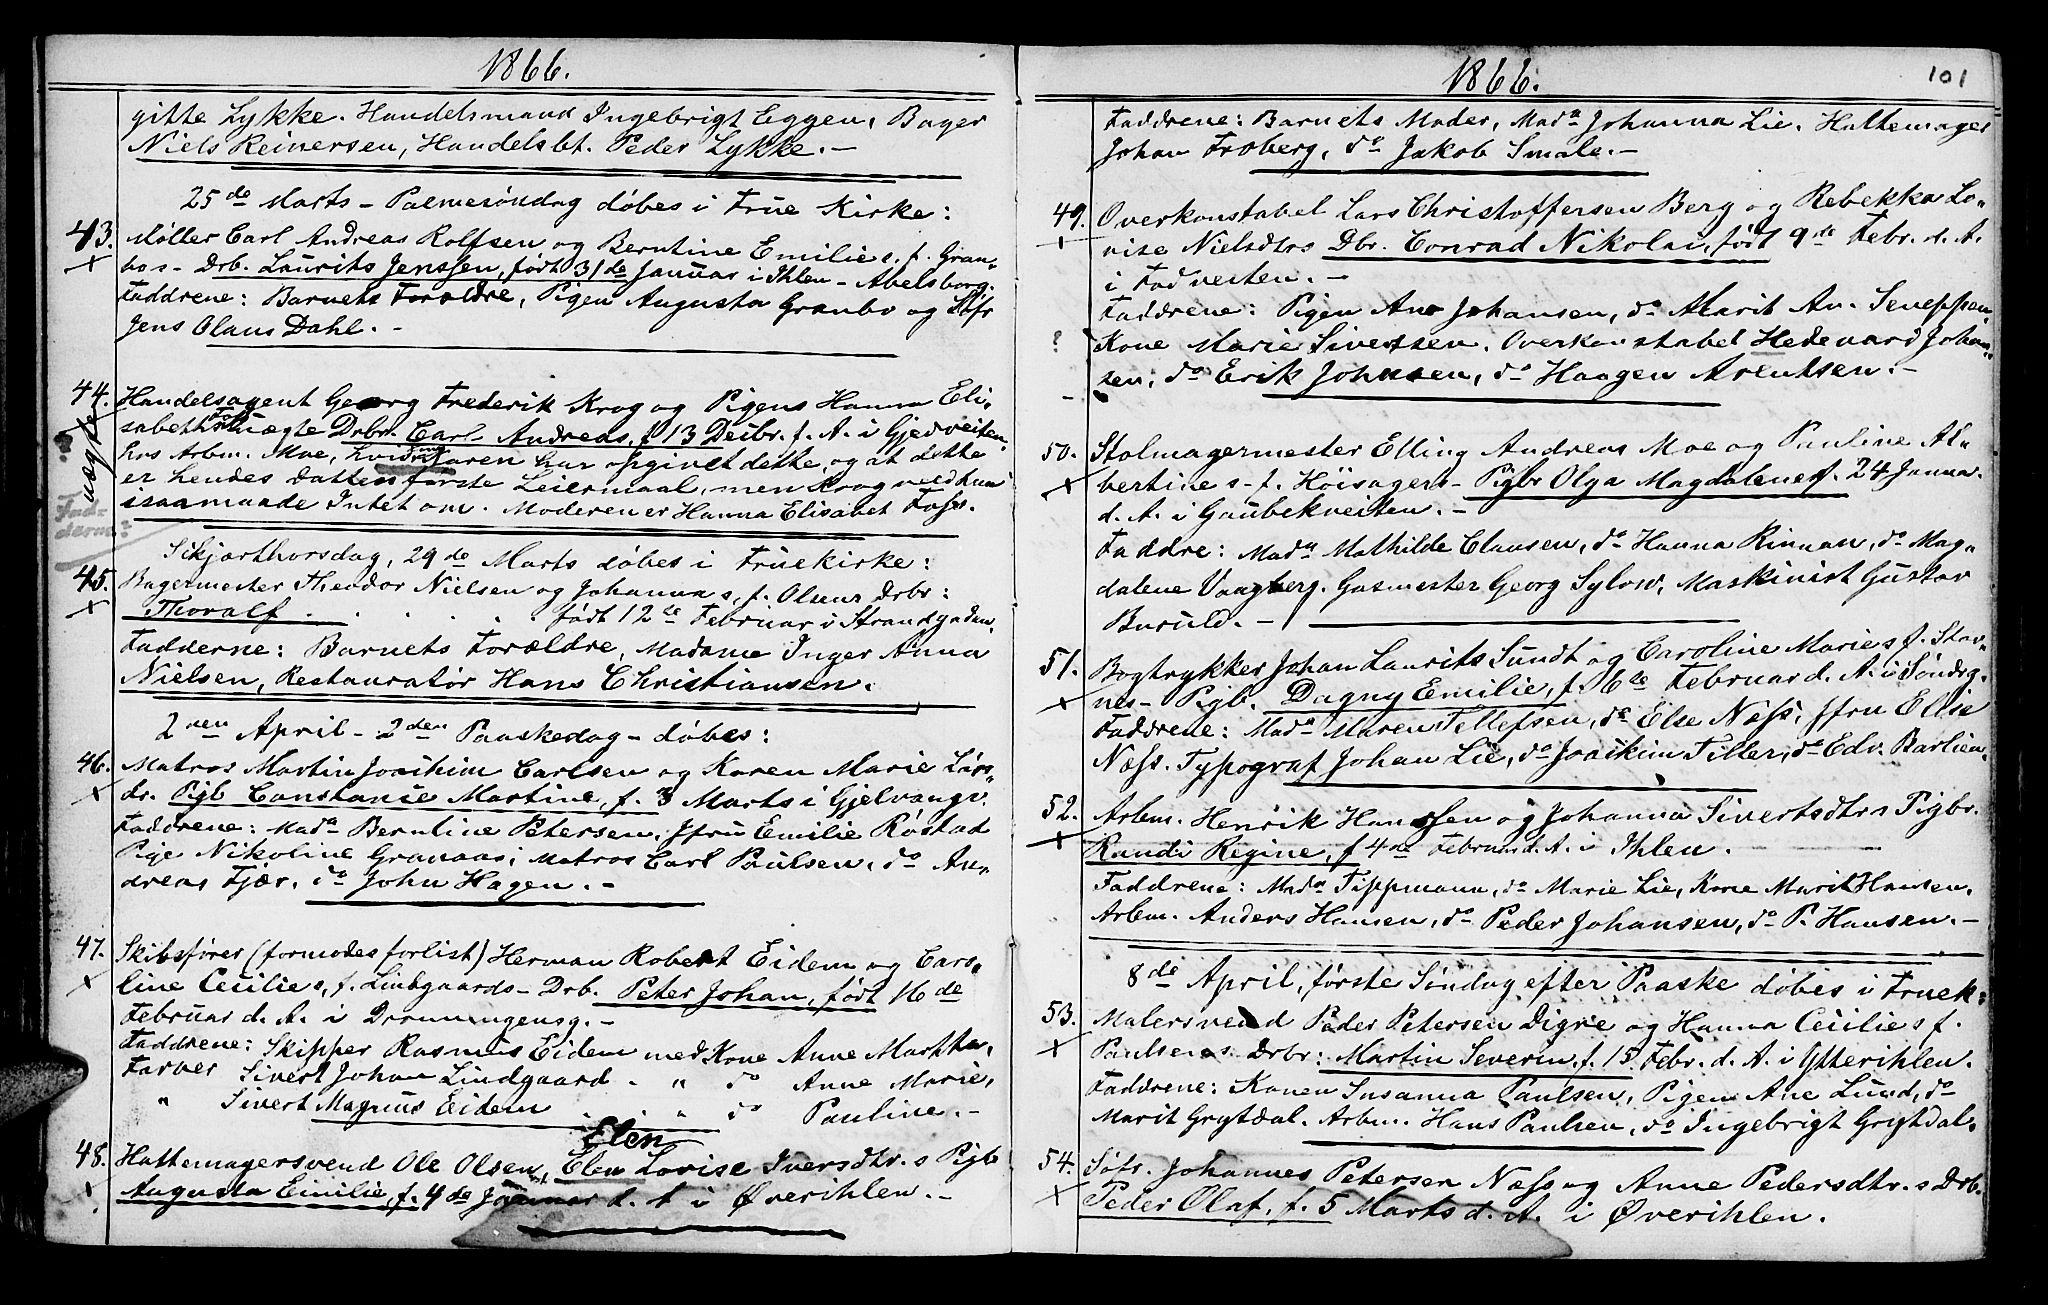 1866.
gitte Lykke. Handelsmand Ingebrigt Eggen, Bager
Niels Reinersen, Handelsbt. Peder Lykke. -
25de Marts - Palmesøndag døbes i Frue Kirke:
43. Møller Carl Andreas Rolfsen og Berntine Emilie s. f. Gran-
x bos - Drb. Laurits Jenssen, født 31de Januar i Ihlen - Abelsborg.
Faddrene: Barnets Forældre, Pigen Augusta Granbo og Søfr
Jens Olaus Dahl. -
44. Handelsagent Georg Frederik Krog og Pigens Hanna Eli-
uægte
sabeth Foss uægte Drbr. Carl Andreas, f 13 Decbr. f. A. i Gjedveiten
hos Arbm. Moe, hvis
er hendes første Leiermaal, men Krog vedkun
issaamaade Intet om. Moderen er Hanna Elisabet Foss.
Fad-
derne:
Skjærthorsdag, 29de Marts døbes i Fruekirke:
45. Bagermester Theodor Nielsen og Johanna s. f. Olsens Drbr:
x Thoralf . . . . født 12te Februar i Strandgaden.
Fadderne: Barnets Forældre, Madame Inger Anna
Nielsen, Restauratør Hans Christiansen.
2nen April - 2den Paaskedag - døbes:
46. Matros Martin Joachim Carlsen og Karen Marie Lars-
x dr. Pigb Constanse Martine, f. 3 Marts i Gjelvangv.
Faddrene: Mada Berntine Petersen, Jfru Emilie Røstad
Pige Nikoline Granaas, Matros Carl Paulsen, do An-
dreas Fjær, do John Hagen. -
47. Skibsfører (formodes forlist) Herman Robert Eidem og Caro-
x line Cecilie s. f. Lindgaards - Drb. Peter Johan, født 16de
Februar d. A. i Dronningensg. -
Faddrene: Skipper Rasmus Eidem med Kone Anne Martha,
Farver Sivert Johan Lindgaard - " do Anne Marie,
" Sivert Magnus Eidem . . " do Pauline. -
Elen
48. Hattemagersvend Ole Olsen, Elen Lovise Iversdtr. s Pigb
x Augusta Emilie, f. 4de Januar d. A i Øverihlen. -
1866.
101
Faddrene: Barnets Moder, Mada Johanna Lie. Hattemager
Johan Froberg, do Jakob Smale. -
49. Overkonstabel Lars Christoffersen Berg og Rebekka Lo-
x vise Nielsdtrs Dbr. Conrad Nikolai, født 9de Febr. d. A.
i Fadveiten. -
Faddrene: Pigen Ane Johansen, do Marit An. Seneppen,
Kone Marie Sivertsen. Overkonstabel Hedevard Johan-
sen, do Erik Johnsen, do Haagen Arentsen. -
50. Stolmagermester Elling Andreas Moe og Pauline Al-
x bertine s. f. Høisagers - Pigbr Olga Magdalene f. 24 Janua.
d. A. i Gaubekveiten. -
Faddre: Mada Mathilde Clausen, do Hanna Rinnan, do Mag-
dalene Vangberg. Gasmester Georg Sylow, Maskinist Gustav
Buruld. -
51. Bogtrykker Johan Laurits Sundt og Caroline Marie s f. Stav-
x nes - Pigb. Dagny Emilie, f. 6te Februar d. A. i Søndrg.
Faddrene: Mada Maren Tellefsen, do Else Næss, Jfru Elise
Næss. Typograf Johan Lie, do Joakim Tiller, do Edv. Barlien.
52. Arbm. Henrik Hanssen og Johanna Sivertsdtrs Pigbr.
x Randi Regine, f 4de Februar d. A. i Ihlen.
Faddrene: Mada Tippmann, do Marie Lie, Kone Marit Hansen,
Arbm. Anders Hansen, do Peder Johansen, do P. Hansen. -
8de April, første Søndag efter Paaske døbes i Fruek:
53. Malersvend Peder Petersen Digre og Hanna Cecilie s f.
x Paulsens Drbr: Martin Severin f. 15 Febr. d. A. i Ytterihlen.
Faddrene: Konen Susanna Paulsen, Pigen Ane Lund, do
Marit Grytdal. Arbm. Hans Paulsen, do Ingebrigt Grytdal.
54. Søfr. Johannes Petersen Næss og Anne Pedersdtr. s Drb.
x Peder Olaf, f. 5 Marts d. A. i Øverihlen.